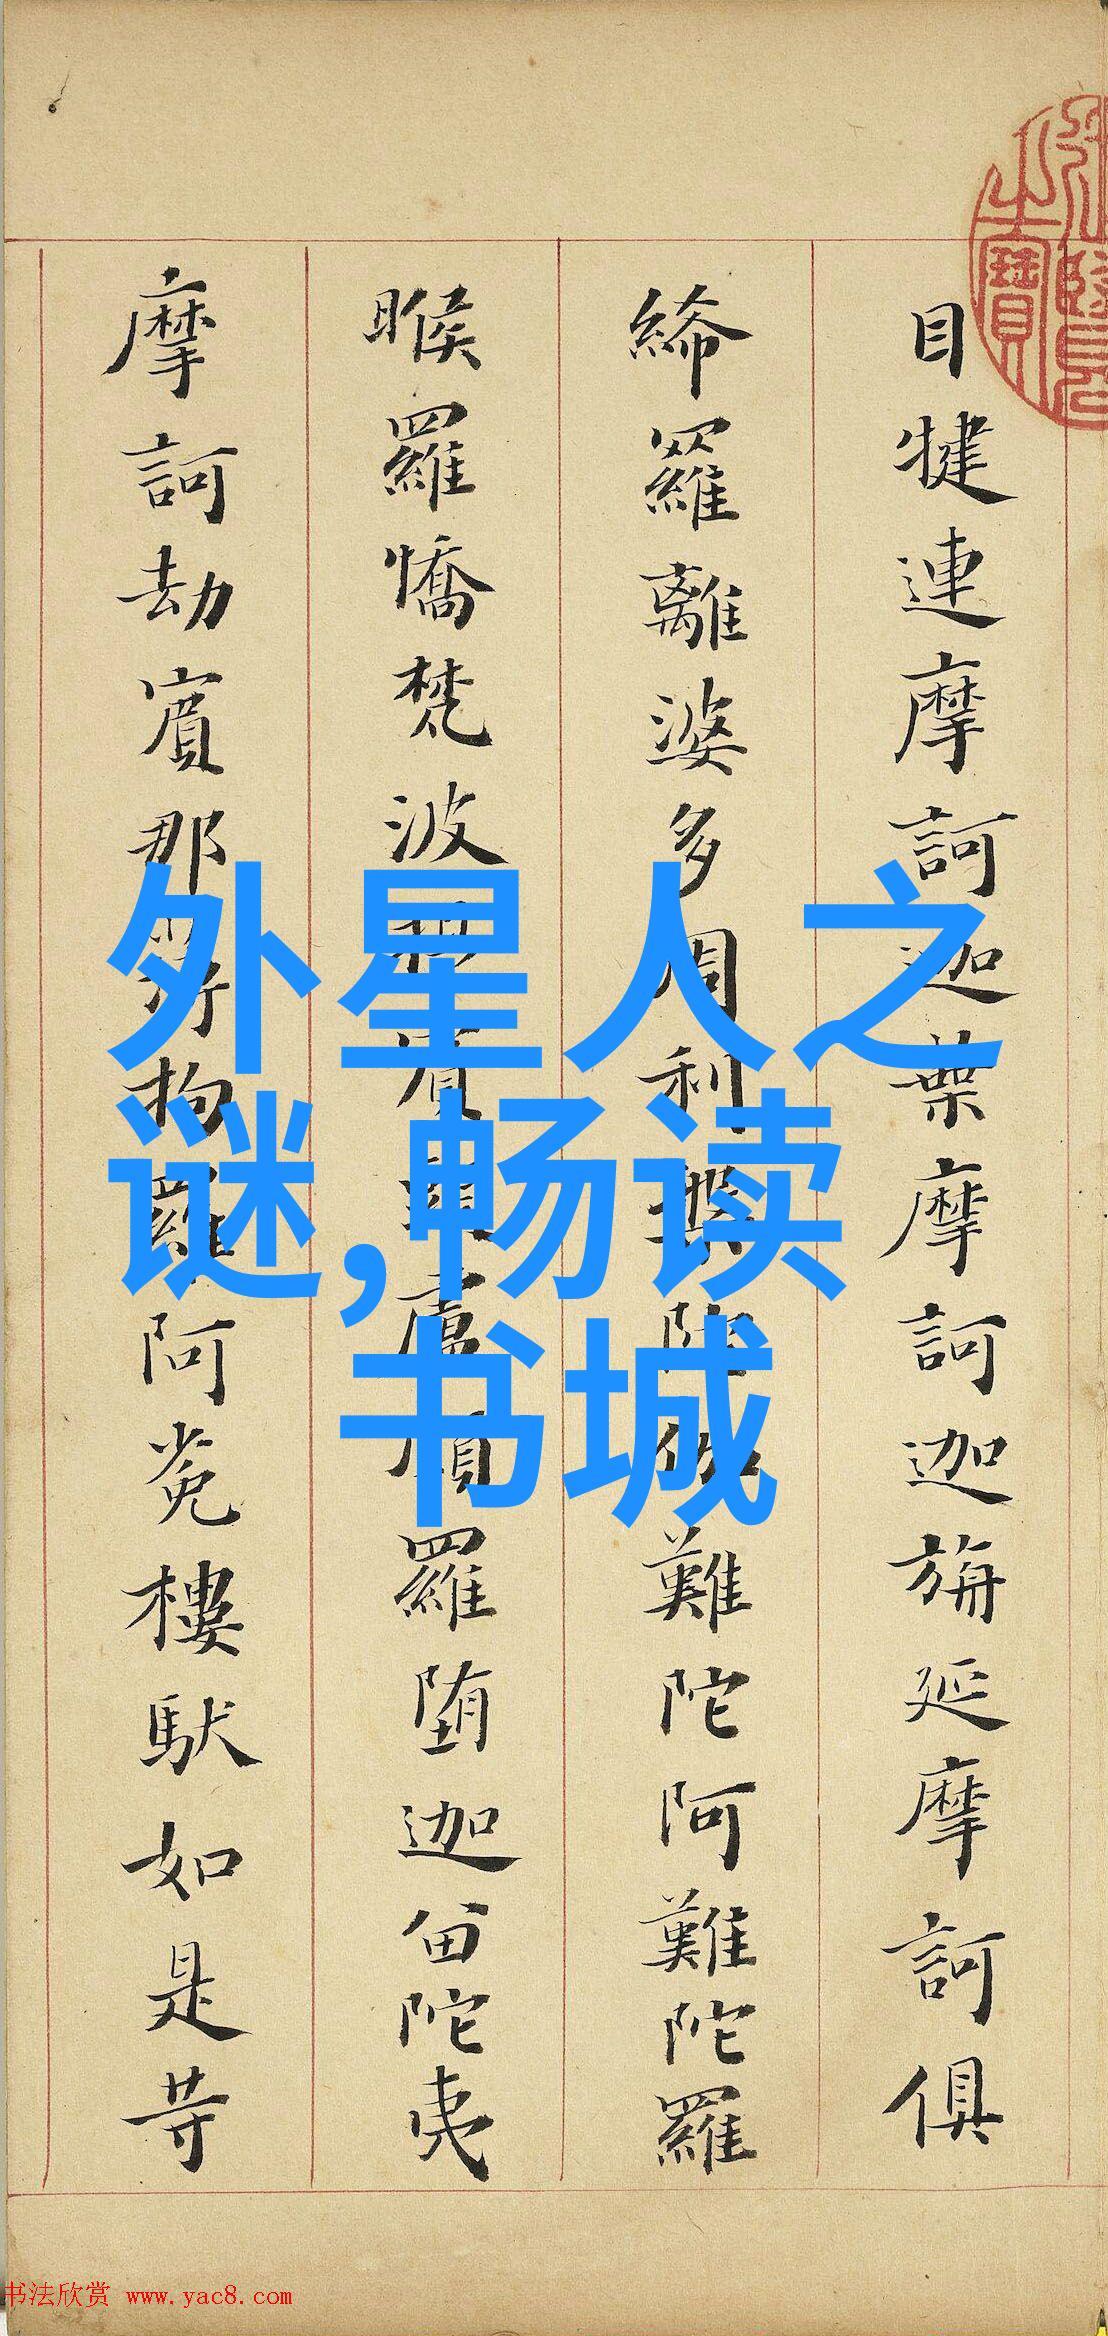 目犍連摩訶迦葉摩訶迦旃延摩訶俱
絺羅離婆多周利槃陀伽難陀阿難陀羅
睺羅憍梵波提賓頭盧頗羅堕迦留陀夷
摩訶劫賓那薄拘羅阿㝹樓馱如是等
外星人之
谜,畅读
书城
之寶
书法欣赏 www.yac8.com